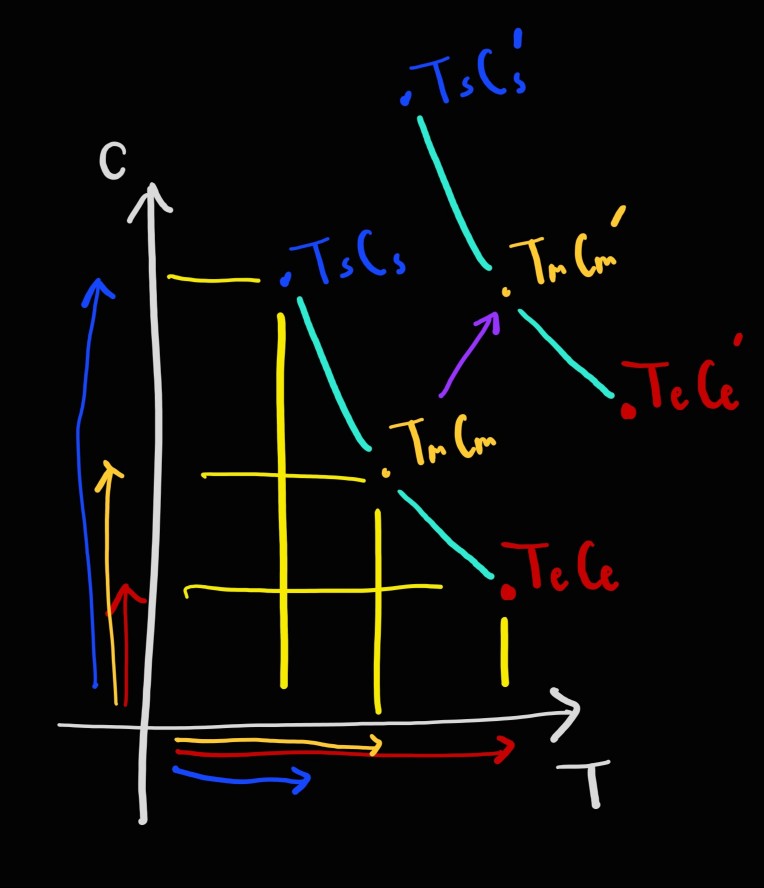 TsCs'
C
TmCm'
TsCs
TeCe'
TmCm
TeCe
T